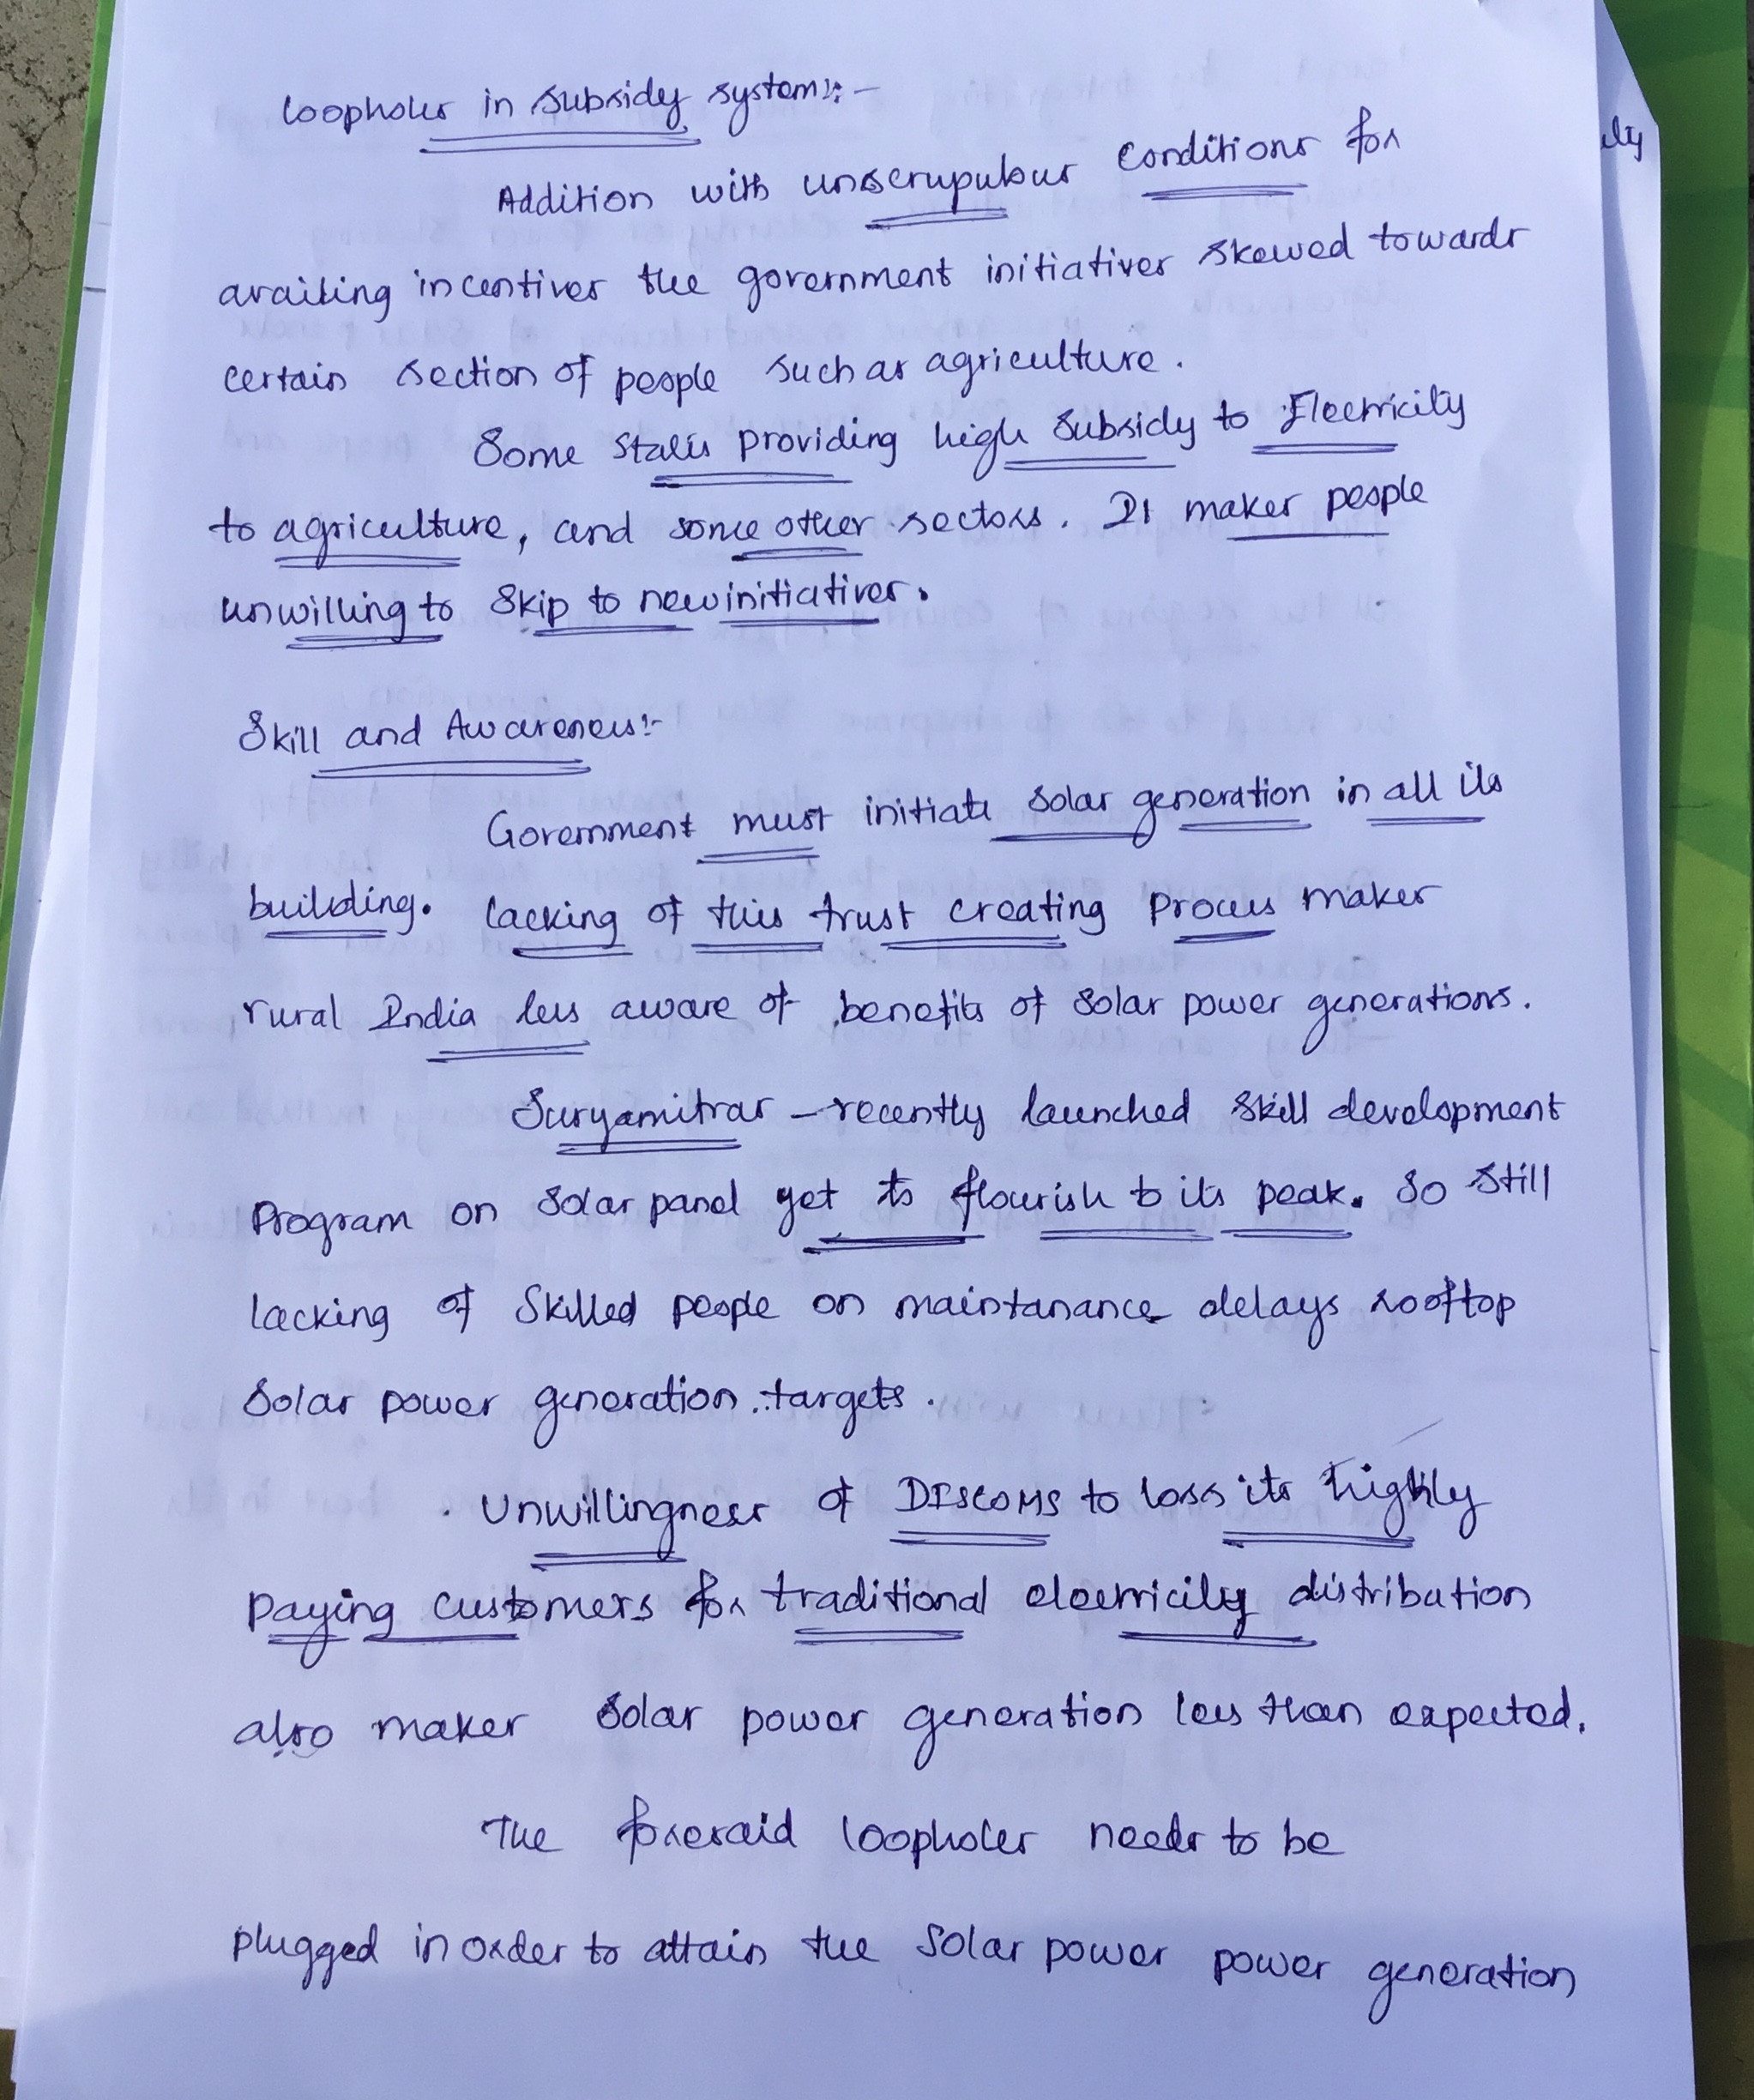 loopholes in subsidy system:-
ily
Addition with unscrupulous conditions for
availing incentives the government initiatives skewed towards
certain section of people such as agriculture.
Some states providing high subsidy to Electricity
to agriculture, and some other sectors. It makes people
unwilling to skip to new initiatives.
Skill and Awareness:-
Government must initiate solar generation in all its
building. lacking of this trust creating process makes
rural India less aware of benefits of solar power generations.
Suryamitras - recently launched skill development
program on solar panel yet to flourish to its peak. So still
lacking of skilled people on maintanance delays rooftop
solar power generation targets.
Unwillingness of DISCOMS to loss its highly
paying customers for traditional electricity distribution
also makes solar power generation less than expected.
The foresaid loopholes needs to be
plugged in order to attain the solar power power generation